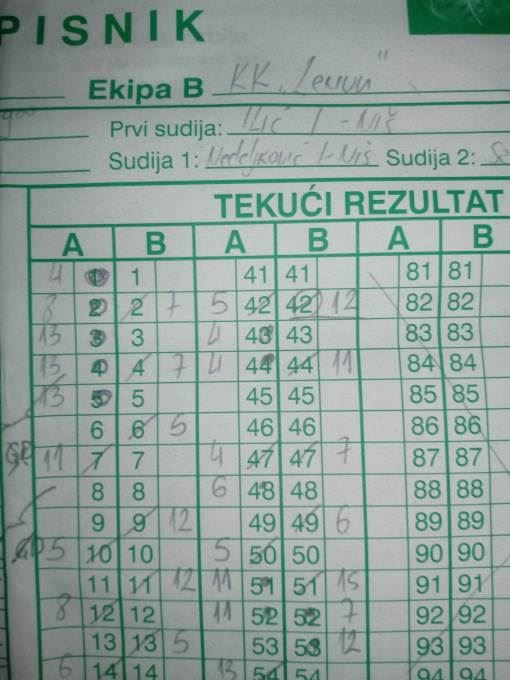 PISNIK
Ekipa B KK „Lemun"
Prvi sudija: Ilić I - Niš
Sudija 1: Nedeljković I - Niš Sudija 2:
TEKUĆI REZULTAT
A B A B A B
4 1 1 41 41 81 81
8 2 2 7 5 42 42 12 82 82
13 3 3 4 43 43 83 83
13 4 4 7 4 44 44 11 84 84
13 5 5 45 45 85 85
6 6 5 46 46 86 86
11 7 7 4 47 47 7 87 87
8 8 6 48 48 88 88
9 9 12 49 49 6 89 89
5 10 10 5 50 50 90 90
11 11 12 11 51 51 15 91 91
8 12 12 11 52 52 7 92 92
13 13 5 53 53 12 93 93
6 14 14 13 54 54 94 94